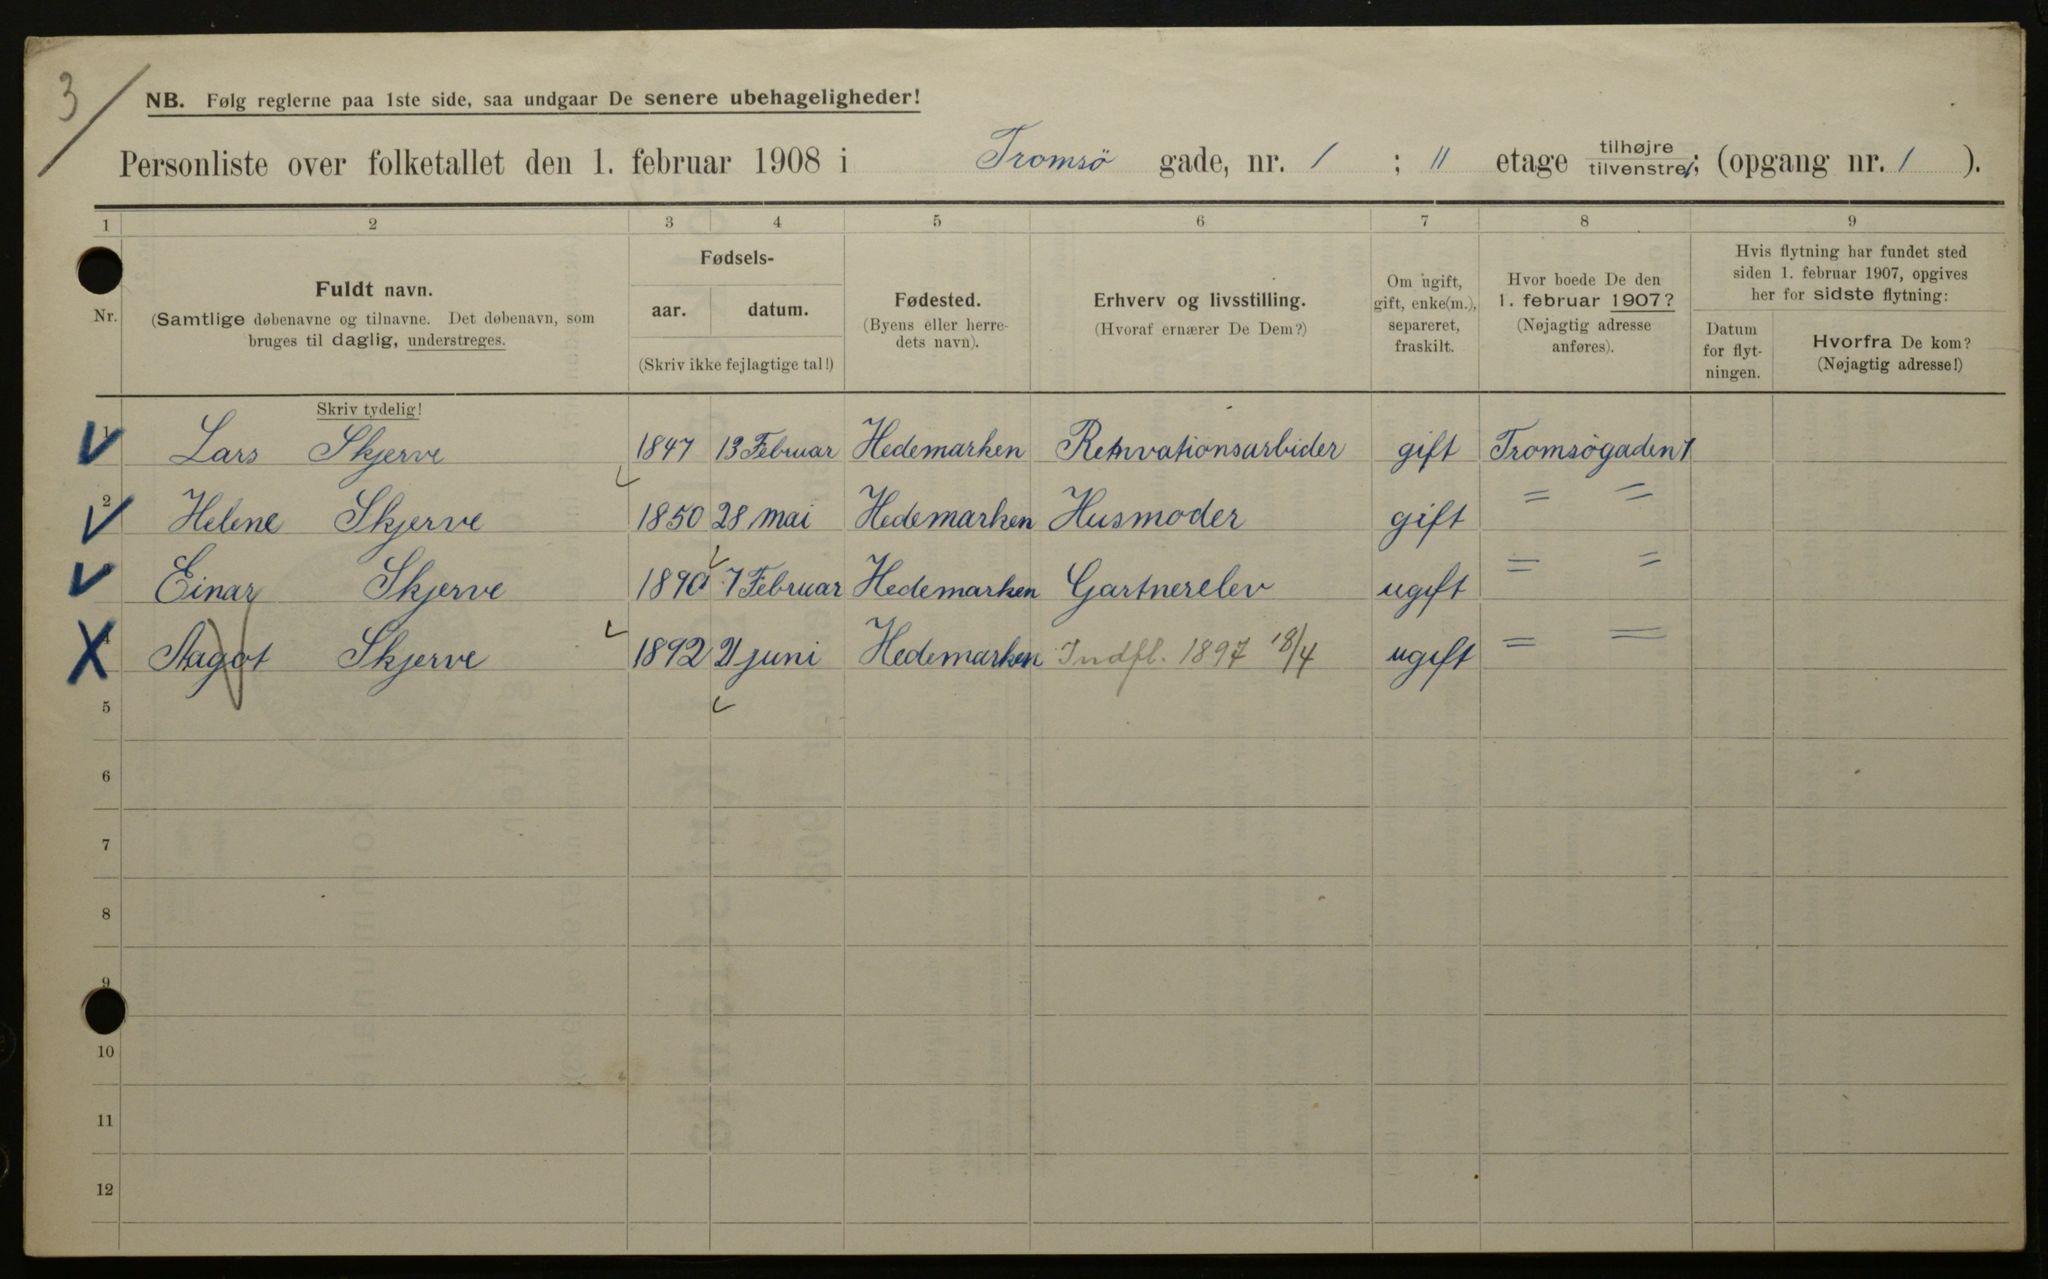 3
NB. Følg reglerne paa 1ste side, saa undgaar De senere ubehageligheder!
Personliste over folketallet den 1. februar 1908 i Tromsö gade, nr. 1 ; II etage tilhøjre tilvenstre; (opgang nr. 1 ).
1 2 3 4 5 6 7 8 9
Nr.
Fuldt navn.
(Samtlige døbenavne og tilnavne. Det døbenavn, som
bruges til daglig, understreges.
Fødsels-
aar. datum.
(Skriv ikke fejlagtige tal!)
Fødested.
(Byens eller herre-
dets navn).
Erhverv og livsstilling.
(Hvoraf ernærer De Dem?)
Om ugift,
gift, enke(m.),
separeret,
fraskilt.
Hvor boede De den
1. februar 1907?
(Nøjagtig adresse
anføres).
Hvis flytning har fundet sted
siden 1. februar 1907, opgives
her for sidste flytning:
Datum
for flyt-
ningen.
Hvorfra De kom?
(Nøjagtig adresse!)
Skriv tydelig!
1 Lars Skjerve 1847 13 Februar Hedemarken Renvationsarbider gift Tromsögaden 1
2 Helene Skjerve 1850 28 mai Hedemarken Husmoder gift = =
Einar Skjerve 1890 7 Februar Hedemarken Gartnerelev ugift = =
4 Aagot Skjerve 1892 21 juni Hedemarken Indfl. 1897 18/4 ugift = =
5
6
7
8
9
10
11
12